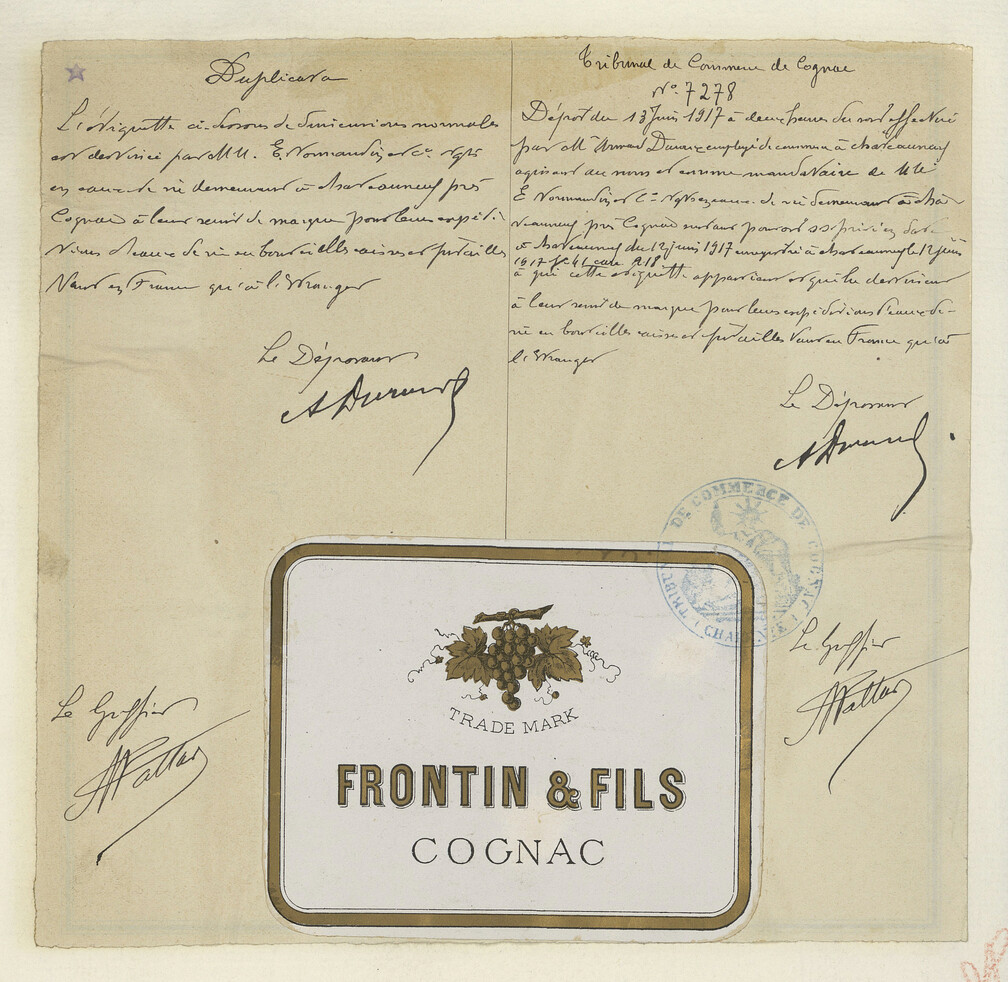 Duplicata
L'étiquette ci-dessous de dimensions normales
est destinée par MM. E. Normandin et Cie Ngts
en eaux-de-vie demeurant à Chateauneuf près
Cognac à leur servir de marque pour leurs expédi-
tions d'eaux de vie en bouteilles caisses et futailles
tant en France qu'à l'étranger
Le Déposant
A Durand
Le Greffier
Tribunal de Commerce de Cognac
N° 7278
Dépôt du 13 Juin 1917 à deux heures du soir effectué
par M. Durand employé de commerce à chateauneuf
agissant au nom et comme mandataire de MM
E Normandin et Cie Ngts en eaux-de-vie demeurant à Cha-
teauneuf près Cognac suivant pouvoir ssg privé en date
à chateauneuf du 12 juin 1917 enregistré à chateauneuf le 12 juin
1917 f° 41 case
à qui cette étiquette appartient et qui la destinent
à leur servir de marque pour leurs expéditions d'eaux-de-
vie en bouteilles caisses et futailles tant en France qu'à
l'étranger
Le Déposant
A Durand
TRIBUNAL DE COMMERCE DE COGNAC
(CHARENTE)
Le Greffier
TRADE MARK
FRONTIN & FILS
COGNAC